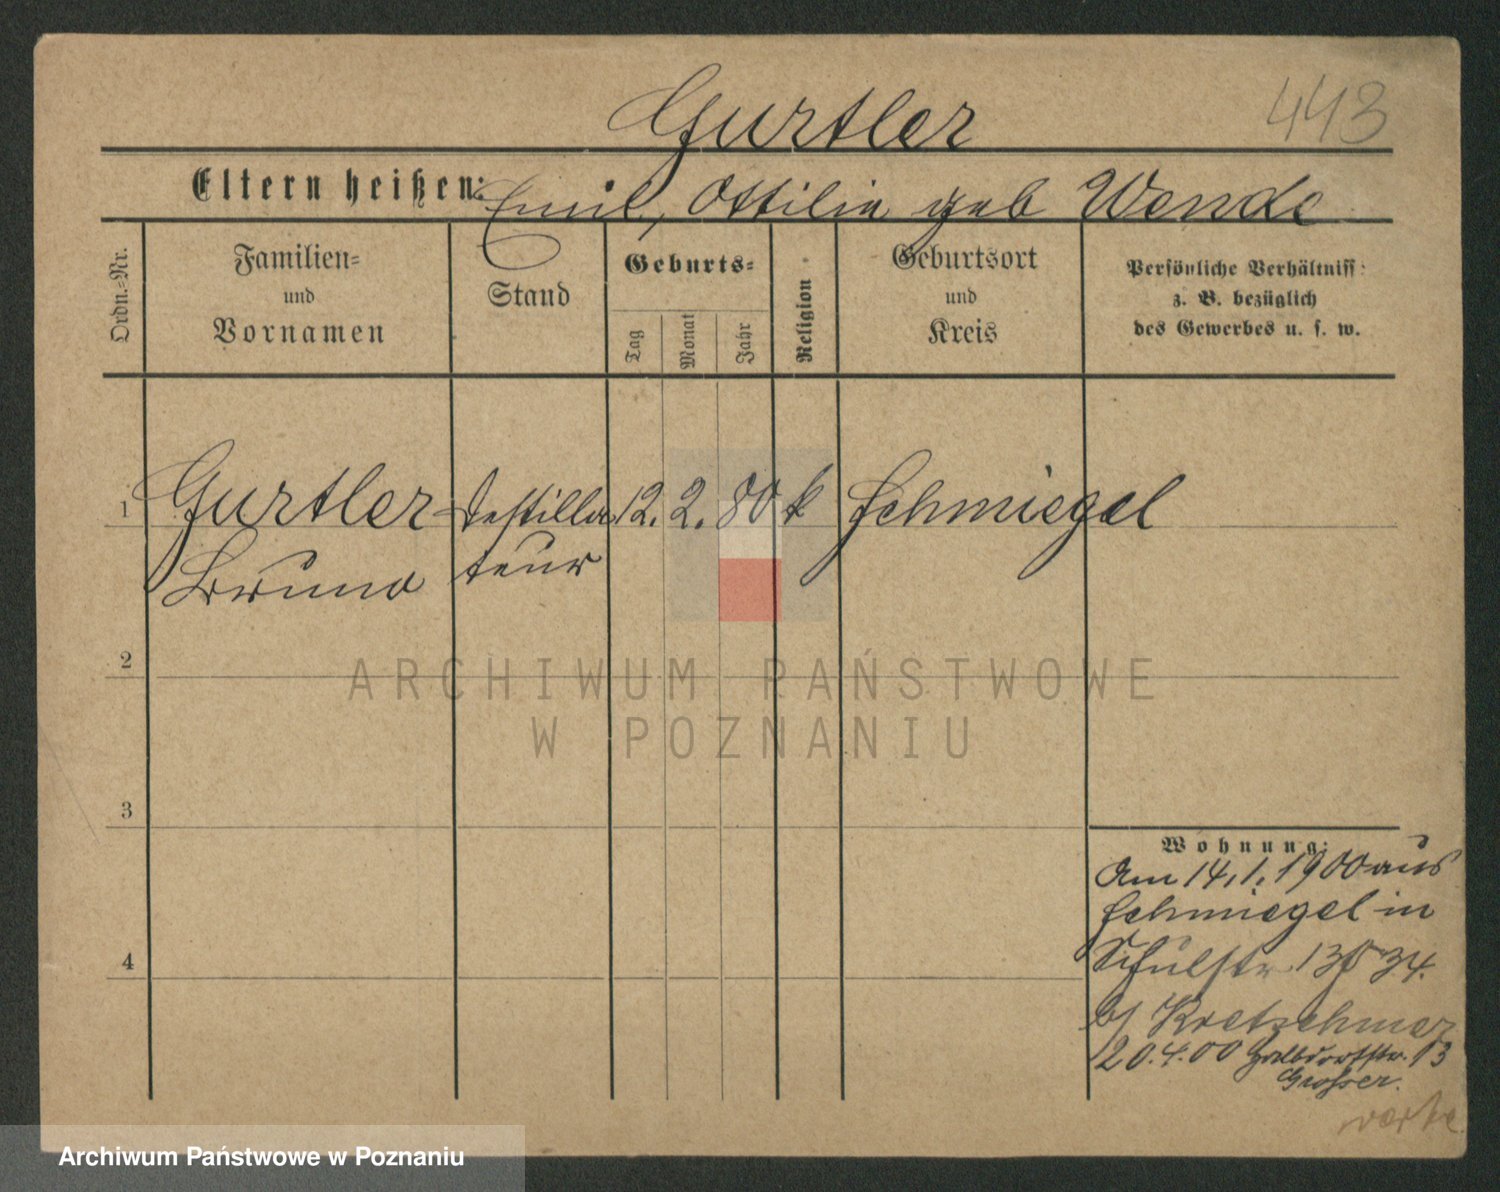 443
Gurtler
Eltern heißen: Emil, Ottilie geb Wende
Ordn.-Nr.
Familien-
und
Vornamen
Stand
Geburts-
Tag
Monat
Jahr
Religion
Geburtsort
und
Kreis
Persönliche Verhältniss:
z. B. bezüglich
des Gewerbes u. s. w.
1 Gurtler Destilla 12. 2. 80 k Schmiegel
Bruno teur
2
ARCHIWUM PAŃSTWOWE
W POZNANIU
3
Wohnung:
Am 14.1.1900 aus
Schmiegel in
4
Schulstr 13 34.
b/ Kretschmer
20.4.00 Halbdorfstr. 13
Grosser.
Archiwum Państwowe w Poznaniu